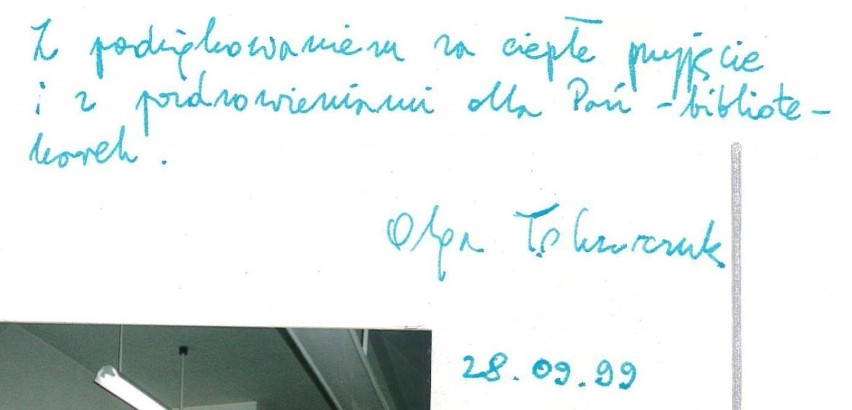 Z podziękowaniem za ciepłe przyjęcie
i z pozdrowieniami dla Pań - bibliote-
karek.
Olga Tokarczuk
28.09.99